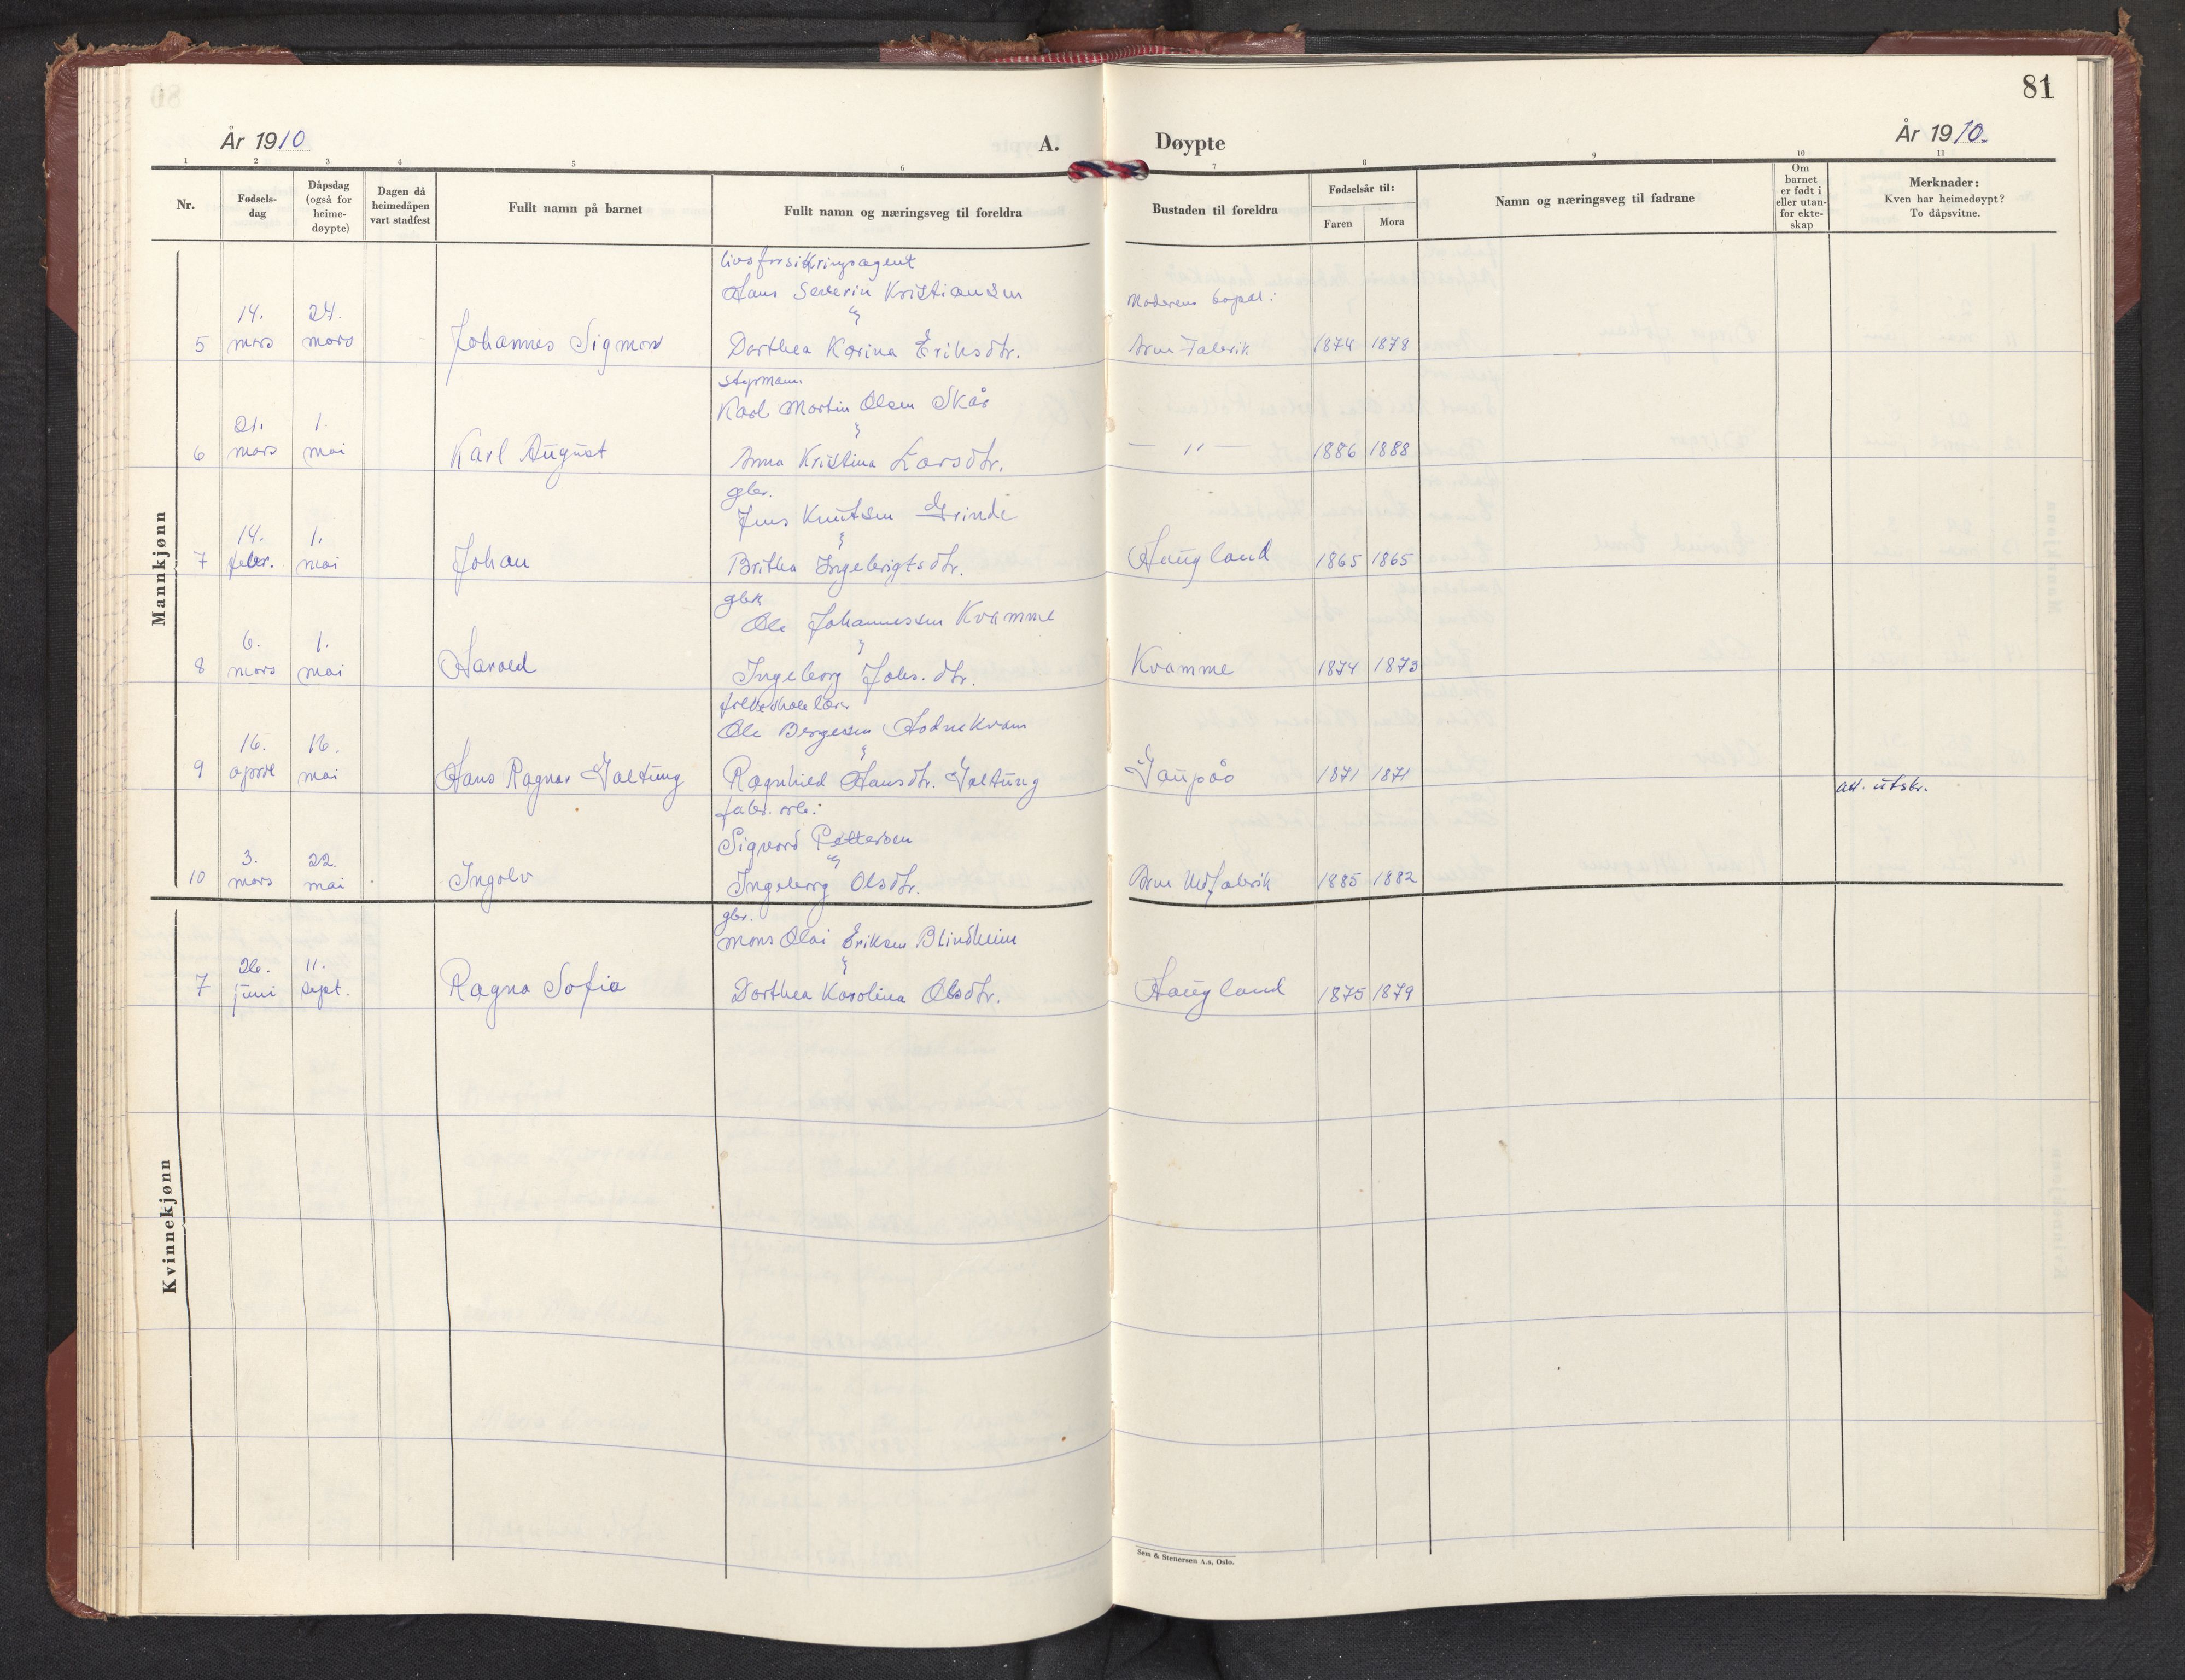 81
År 1910
A.
Døypte
År 1910.
1 2 3 4 5 6 7 8 9 10 11
Nr.
Fødsels-
dag
Dåpsdag
(også for
heime-
døypte)
Dagen då
heimedåpen
vart stadfest
Fullt namn på barnet
Fullt namn og næringsveg til foreldra
Bustaden til foreldra
Fødselsår til:
Faren Mora
Namn og næringsveg til fadrane
Om
barnet
er født i
eller utan-
for ekte-
skap
Merknader:
Kven har heimedøypt?
To dåpsvitne.
Mankjønn
livsforsikringsagent
Hans Severin Kristiansen
Moderens bopæl:
14. 24.
&
5 mars mars Johannes Sigmon Dorthea Karina Eriksdtr. Arne Fabrik 1874 1878
styrmann
Karl Martin Olsen Skår
21. 1.
&
6 mars mai Karl August Anna Kristina Larsdtr. — " — 1886 1888
gbr.
Jens Knutsen Grinde
14. 1.
&
7 febr. mai Johan Britha Ingebrigtsdtr. Haugland 1865 1865
gbr.
Ole Johannessen Kvamme
6. 1.
&
8 mars mai Harald Ingeborg Johs. dtr. Kvamme 1874 1873
folkeskolelærer
Ole Bergesen Hodnekvam
16. 16.
&
9 april mai Hans Ragnar Galtung Ragnhild Hansdtr. Galtung Gaupås 1871 1871
att. utskr.
fabr. arb:
Sigvard Pettersen
3. 22.
&
10 mars mai Ingolv Ingeborg Olsdtr. Arne Uldfabrik 1885 1882
Kvinnekjønn
gbr.
Mons Olai Eriksen Blindheim
26. 11.
&
7 juni sept. Ragna Sofie Dorthea Karolina Olsdtr. Haugland 1875 1879
Sem & Stenersen A.s, Oslo.